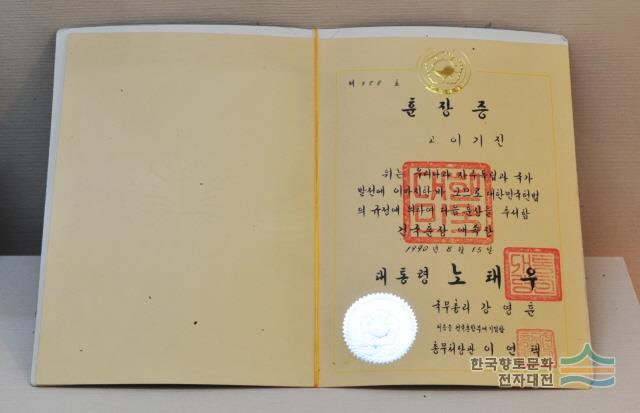 제 호
훈장증
고 이기진
위는 우리나라 자주독립과 국가
발전에 이바지한바 크므로 대한민국헌법
의 규정에 의하여 다음 훈장을 추서함
건국훈장 애족장
1990년 8월 15일
대통령 노태우
국무총리 강영훈
이 증을 건국훈장부에 기입함
총무처장관 이연택
한국향토문화
전자대전